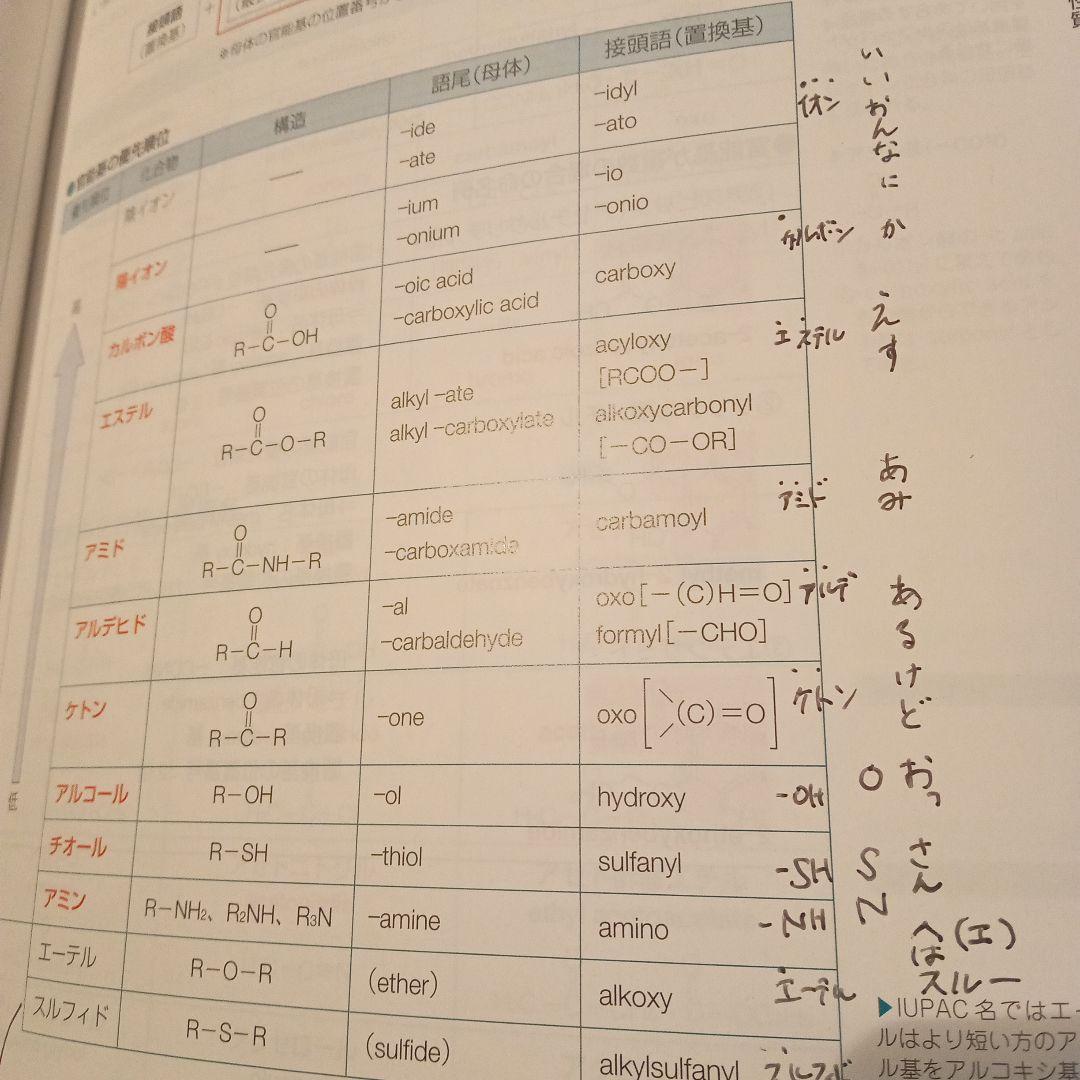 接頭語
(置換基)
+
※母体の官能基の位置番号が
●官能基の優先順位
優先順位 化合物 構造 語尾(母体) 接頭語(置換基)
高
低
陰イオン — -ide -idyl
-ate -ato
陽イオン — -ium -io
-onium -onio
カルボン酸 R-C-OH -oic acid carboxy
O
-carboxylic acid
エステル R-C-O-R alkyl -ate acyloxy
O
alkyl -carboxylate [RCOO-]
alkoxycarbonyl
[-CO-OR]
アミド R-C-NH-R -amide carbamoyl
O
-carboxamide
アルデヒド R-C-H -al oxo[-(C)H=O]
O
-carbaldehyde formyl[-CHO]
ケトン R-C-R -one oxo[>(C)=O]
O
アルコール R-OH -ol hydroxy
チオール R-SH -thiol sulfanyl
アミン R-NH₂、R₂NH、R₃N -amine amino
エーテル R-O-R (ether) alkoxy
スルフィド R-S-R (sulfide) alkylsulfanyl
イオン
カルボン
エステル
アミド
アルデ
ケトン
-OH
-SH
-NH
エーテル
スルフィド
いいかんなに
か
えす
あみ
あるけど
O おっ
S さん
N
へ(エ)
は
スルー
▶IUPAC名ではエー
ルはより短い方のア
ル基をアルコキシ基